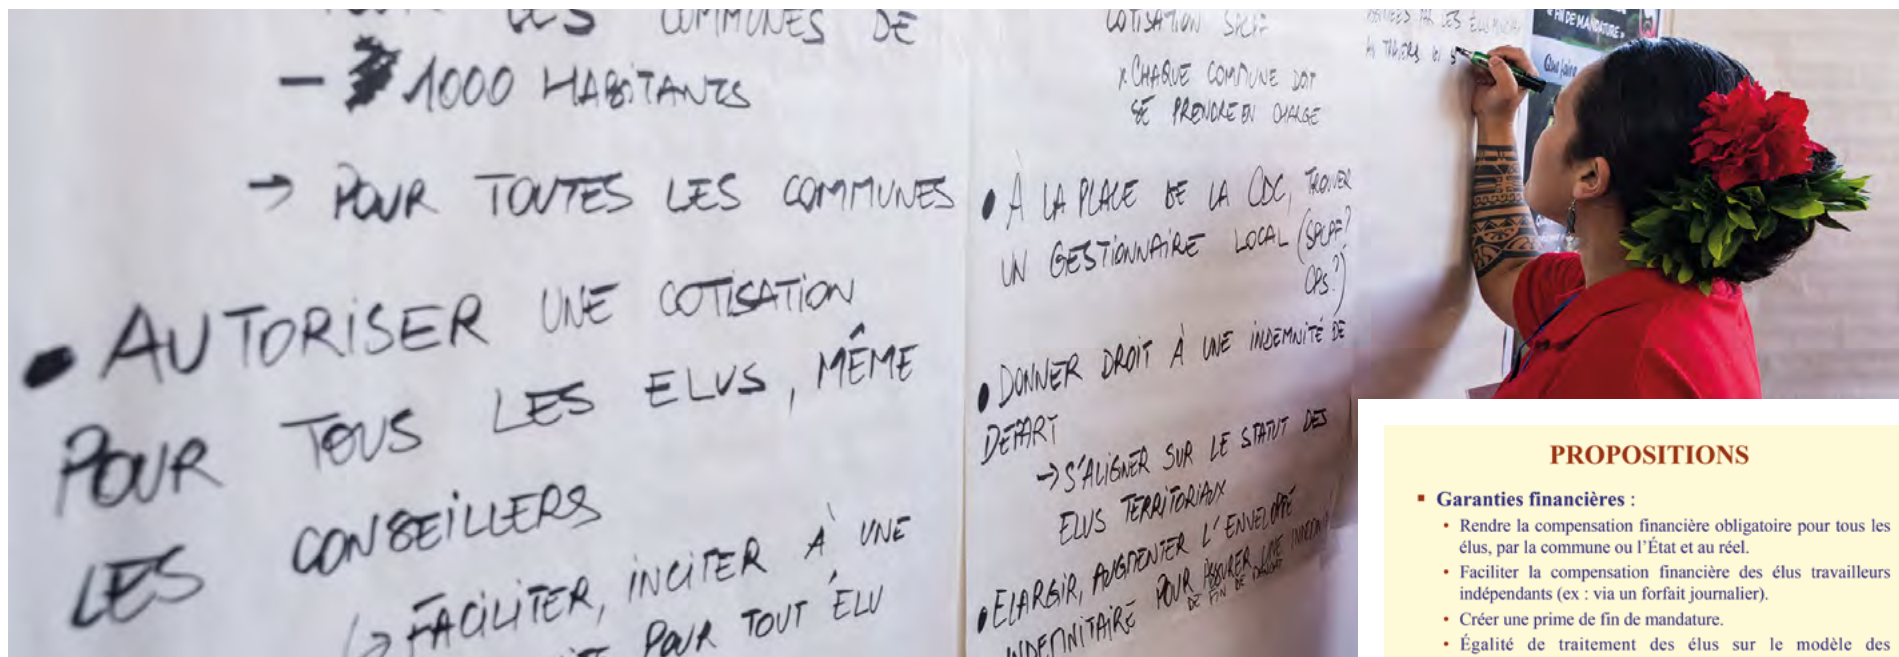 LES COMMUNES DE
- 1000 HABITANTS
→ POUR TOUTES LES COMMUNES
• AUTORISER UNE COTISATION
POUR TOUS LES ELUS, MÊME
LES CONSEILLERS
↳ FACILITER, INCITER À UNE
POUR TOUT ÉLU
COTISATION SPCPF
x CHAQUE COMMUNE DOIT
SE PRENDRE EN CHARGE
• À LA PLACE DE LA CDC, TROUVER
UN GESTIONNAIRE LOCAL (SPCPF?
CPS?)
• DONNER DROIT À UNE INDEMNITÉ DE
DEPART
→ S'ALIGNER SUR LE STATUT DES
ELUS TERRITORIAUX
• ELARGIR, AUGMENTER L'ENVELOPPE
INDEMNITAIRE POUR ASSURER UNE
DE FIN DE
PAR LES ÉLUS
AU TRAVERS
« FIN DE MANDATURE »
Que faire
PROPOSITIONS
▪ Garanties financières :
• Rendre la compensation financière obligatoire pour tous les
élus, par la commune ou l'État et au réel.
• Faciliter la compensation financière des élus travailleurs
indépendants (ex : via un forfait journalier).
• Créer une prime de fin de mandature.
• Égalité de traitement des élus sur le modèle des